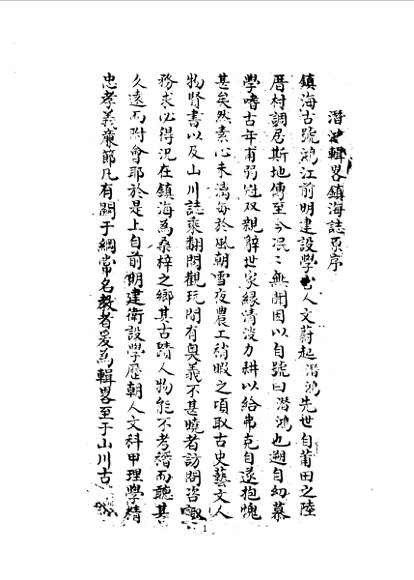 潛輯畧鎮海誌原序
鎮海古號鴻江前明建設學宮人文蔚起潛鴻先世自莆田之陸
厝村調居斯地傳至今泯〻無聞因以自號曰潛鴻也溯自幼慕
學嗜古年甫弱冠双親辞世家緣清淡力耕以給弗克自遂抱愧
甚矣然素心未满每於風朝雪夜農工稍暇之項取古史藝文人
物賢書以及山川誌乘翻閱觀玩間有奥義不甚曉者訪問咨諏
務求必得况在鎮海為桑梓之鄉其古蹟人物能不考稽而聽其
久遠而附會耶於是上自前明建衛設學歷朝人文科甲理學精
忠孝義廉節凡有關于綱常名教者爰為輯畧至于山川古
1